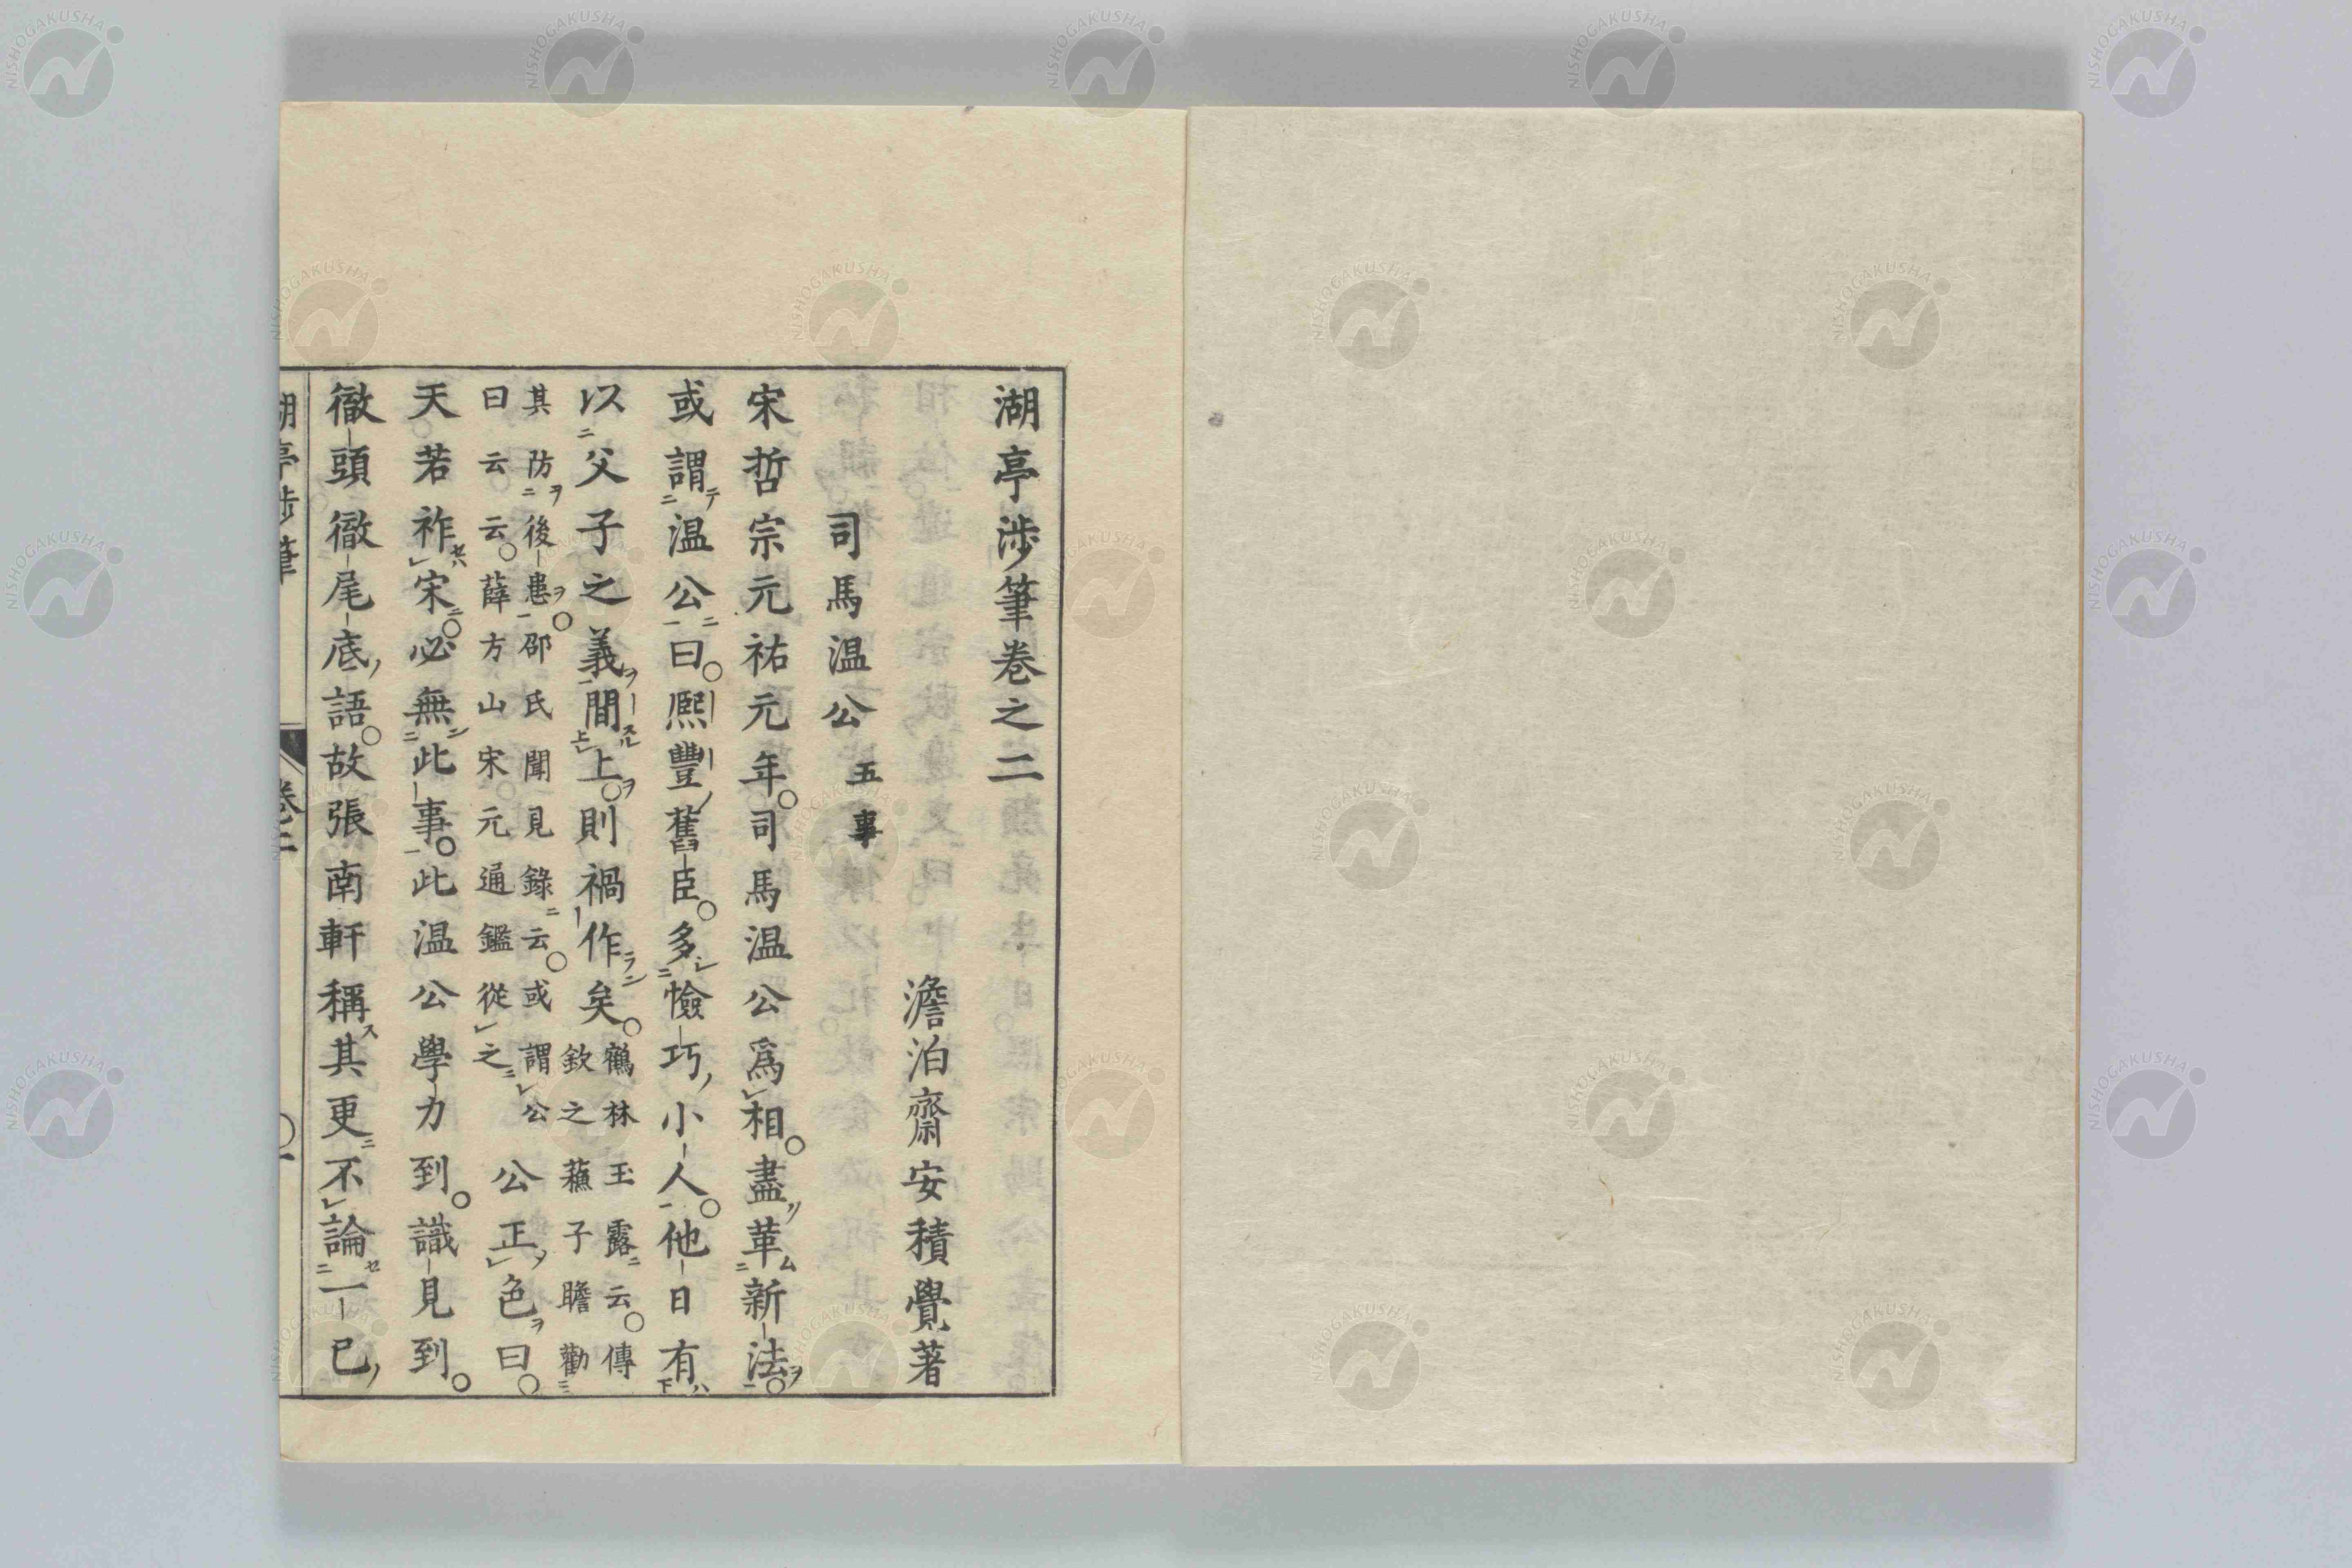 湖亭渉筆卷之二
澹泊齋安積覺著
司馬温公 五事
宋哲宗元祐元年。司馬温公爲相。盡革新法。
或謂温公曰。熈豐舊臣。多憸巧小人。他日有
以父子之義間上。則禍作矣。鶴林玉露云。傳
欽之蘓子瞻勸
其防後患。邵氏聞見錄云。或謂公
曰云云。薛方山宋元通鑑從之
公正色曰。
天若祚宋。必無此事。此温公學力到。識見到。
徹頭徹尾底語。故張南軒稱其更不論一已
湖亭渉筆 卷二 一
NISHOGAKUSHA